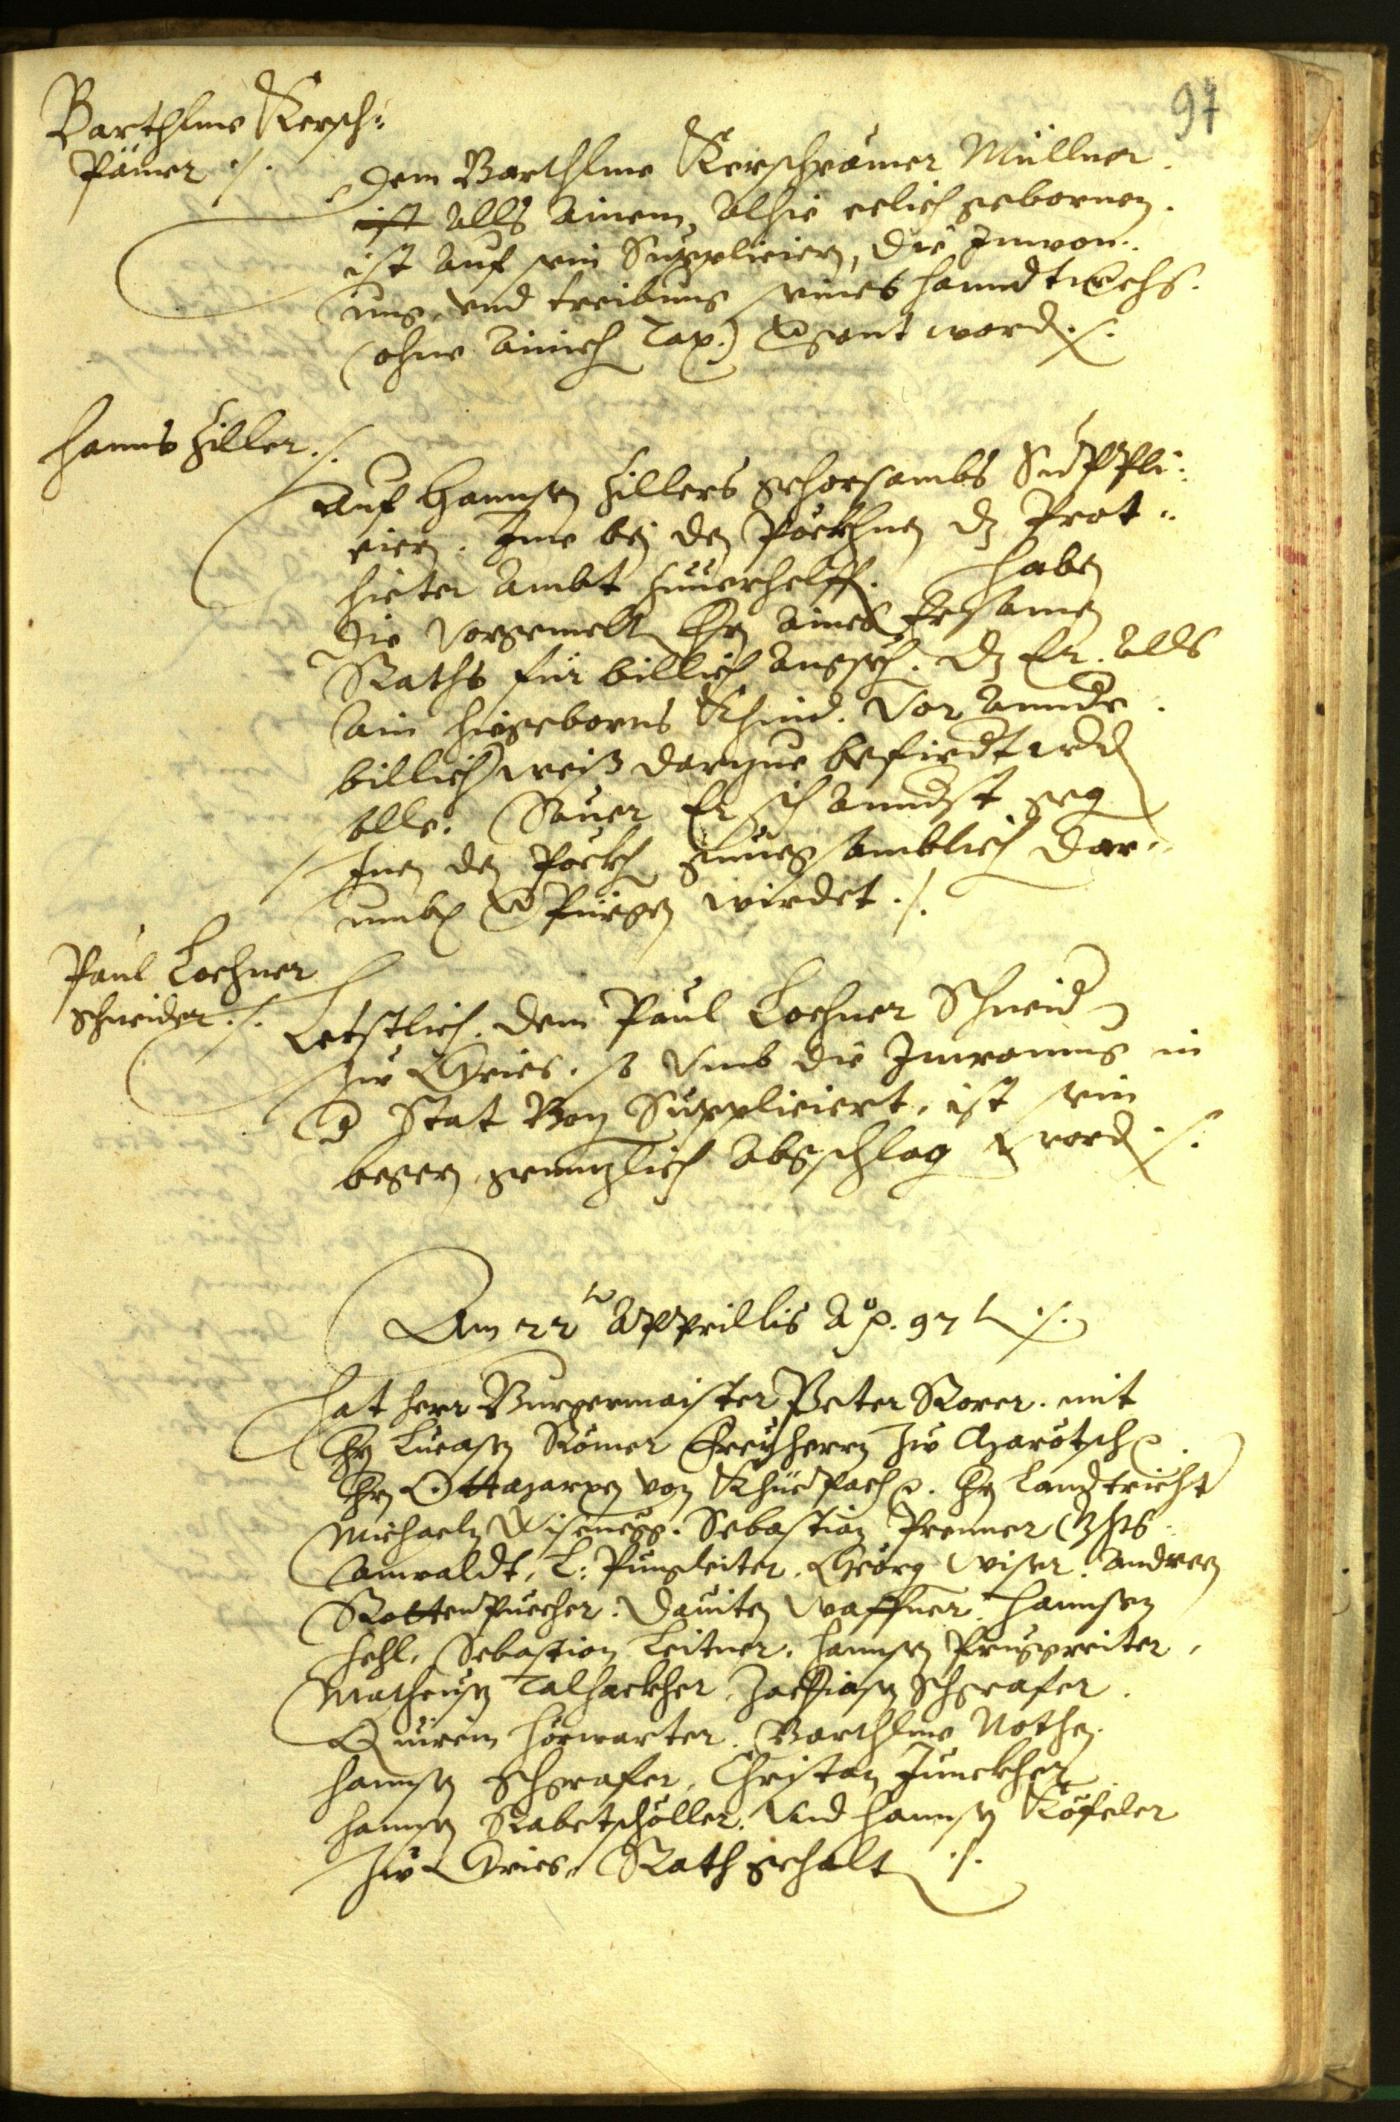 97
Barthlme Kersch=
pämer ./.
Dem Barthlme Kerschpämer Müllner.
ist alls ainem, alhie eelich gebornen.
ist auf sein Supplicirn, die Inwon=
ung, vnd treibung seines hanndtwerchs.
(ohne ainich Tax.) vergont word ./.
Hanns Hiller ./.
Auf Hannsen Hillers gehorsambs Suppli=
cirn. Ime bey den Pöckhnen dz Prot=
hieter Ambt zuuerhelffen. haben
die Vorgemelten Hrn aines Ersamen
Raths für billich angesehen. dz Er. alls
ain hiegeborns Khind. Vor annde
billich weiß darzue befürdert werd
solle. Souer Er sich annderst geg
Inen den Pöckhen gnuegsamblich dar=
umb verpürgen wirdet ./.
Paul Lochner
schneider ./.
Letstlich. dem Paul Lochner Schneider
zu Gries. so vmb die Inwonung in
der Stat Bozn Suppliciert, ist sein
begern genntzlich abgeschlagen word ./.
Am 22 to Apprillis Ao p. 97 ten ./.
Hat herr Burgermaister Peter Rorer. mit
Hrn Lucasen Römer Freyherrn zu Marötsch p.
Hrn Ottmarxen von Khüepach p. Hrn Landtricht
Michaeln. Sebastian Prenner
Anwaldt, L: Pungleiter, Georg Wiser. Andreen
Rottenpuecher. Dauiten Waffner. Hannsen
Hehl. Sebastian Leitner. Hannsen Prugreiter,
Matheusen Talhackher. Zachiasen Schgrafer.
Quirein Hörwarter. Barthlme Nothen.
Hannsen Schgrafer. Christan Junckher
Hannsen Rabetschöller. Vnd Hannsen Köfeler
zu Gries. Rath gehalten ./.